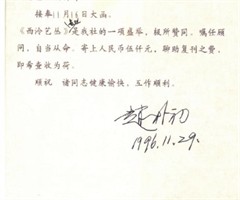 接奉11月14日大函。
《西泠艺丛》是我社的一项盛举，极所赞同。嘱任顾
问，自当从命。寄上人民币伍仟元，聊助复刊之费，
即希查收为荷。
顺祝 诸同志健康愉快，工作顺利。
赵朴初
1996.11.29.